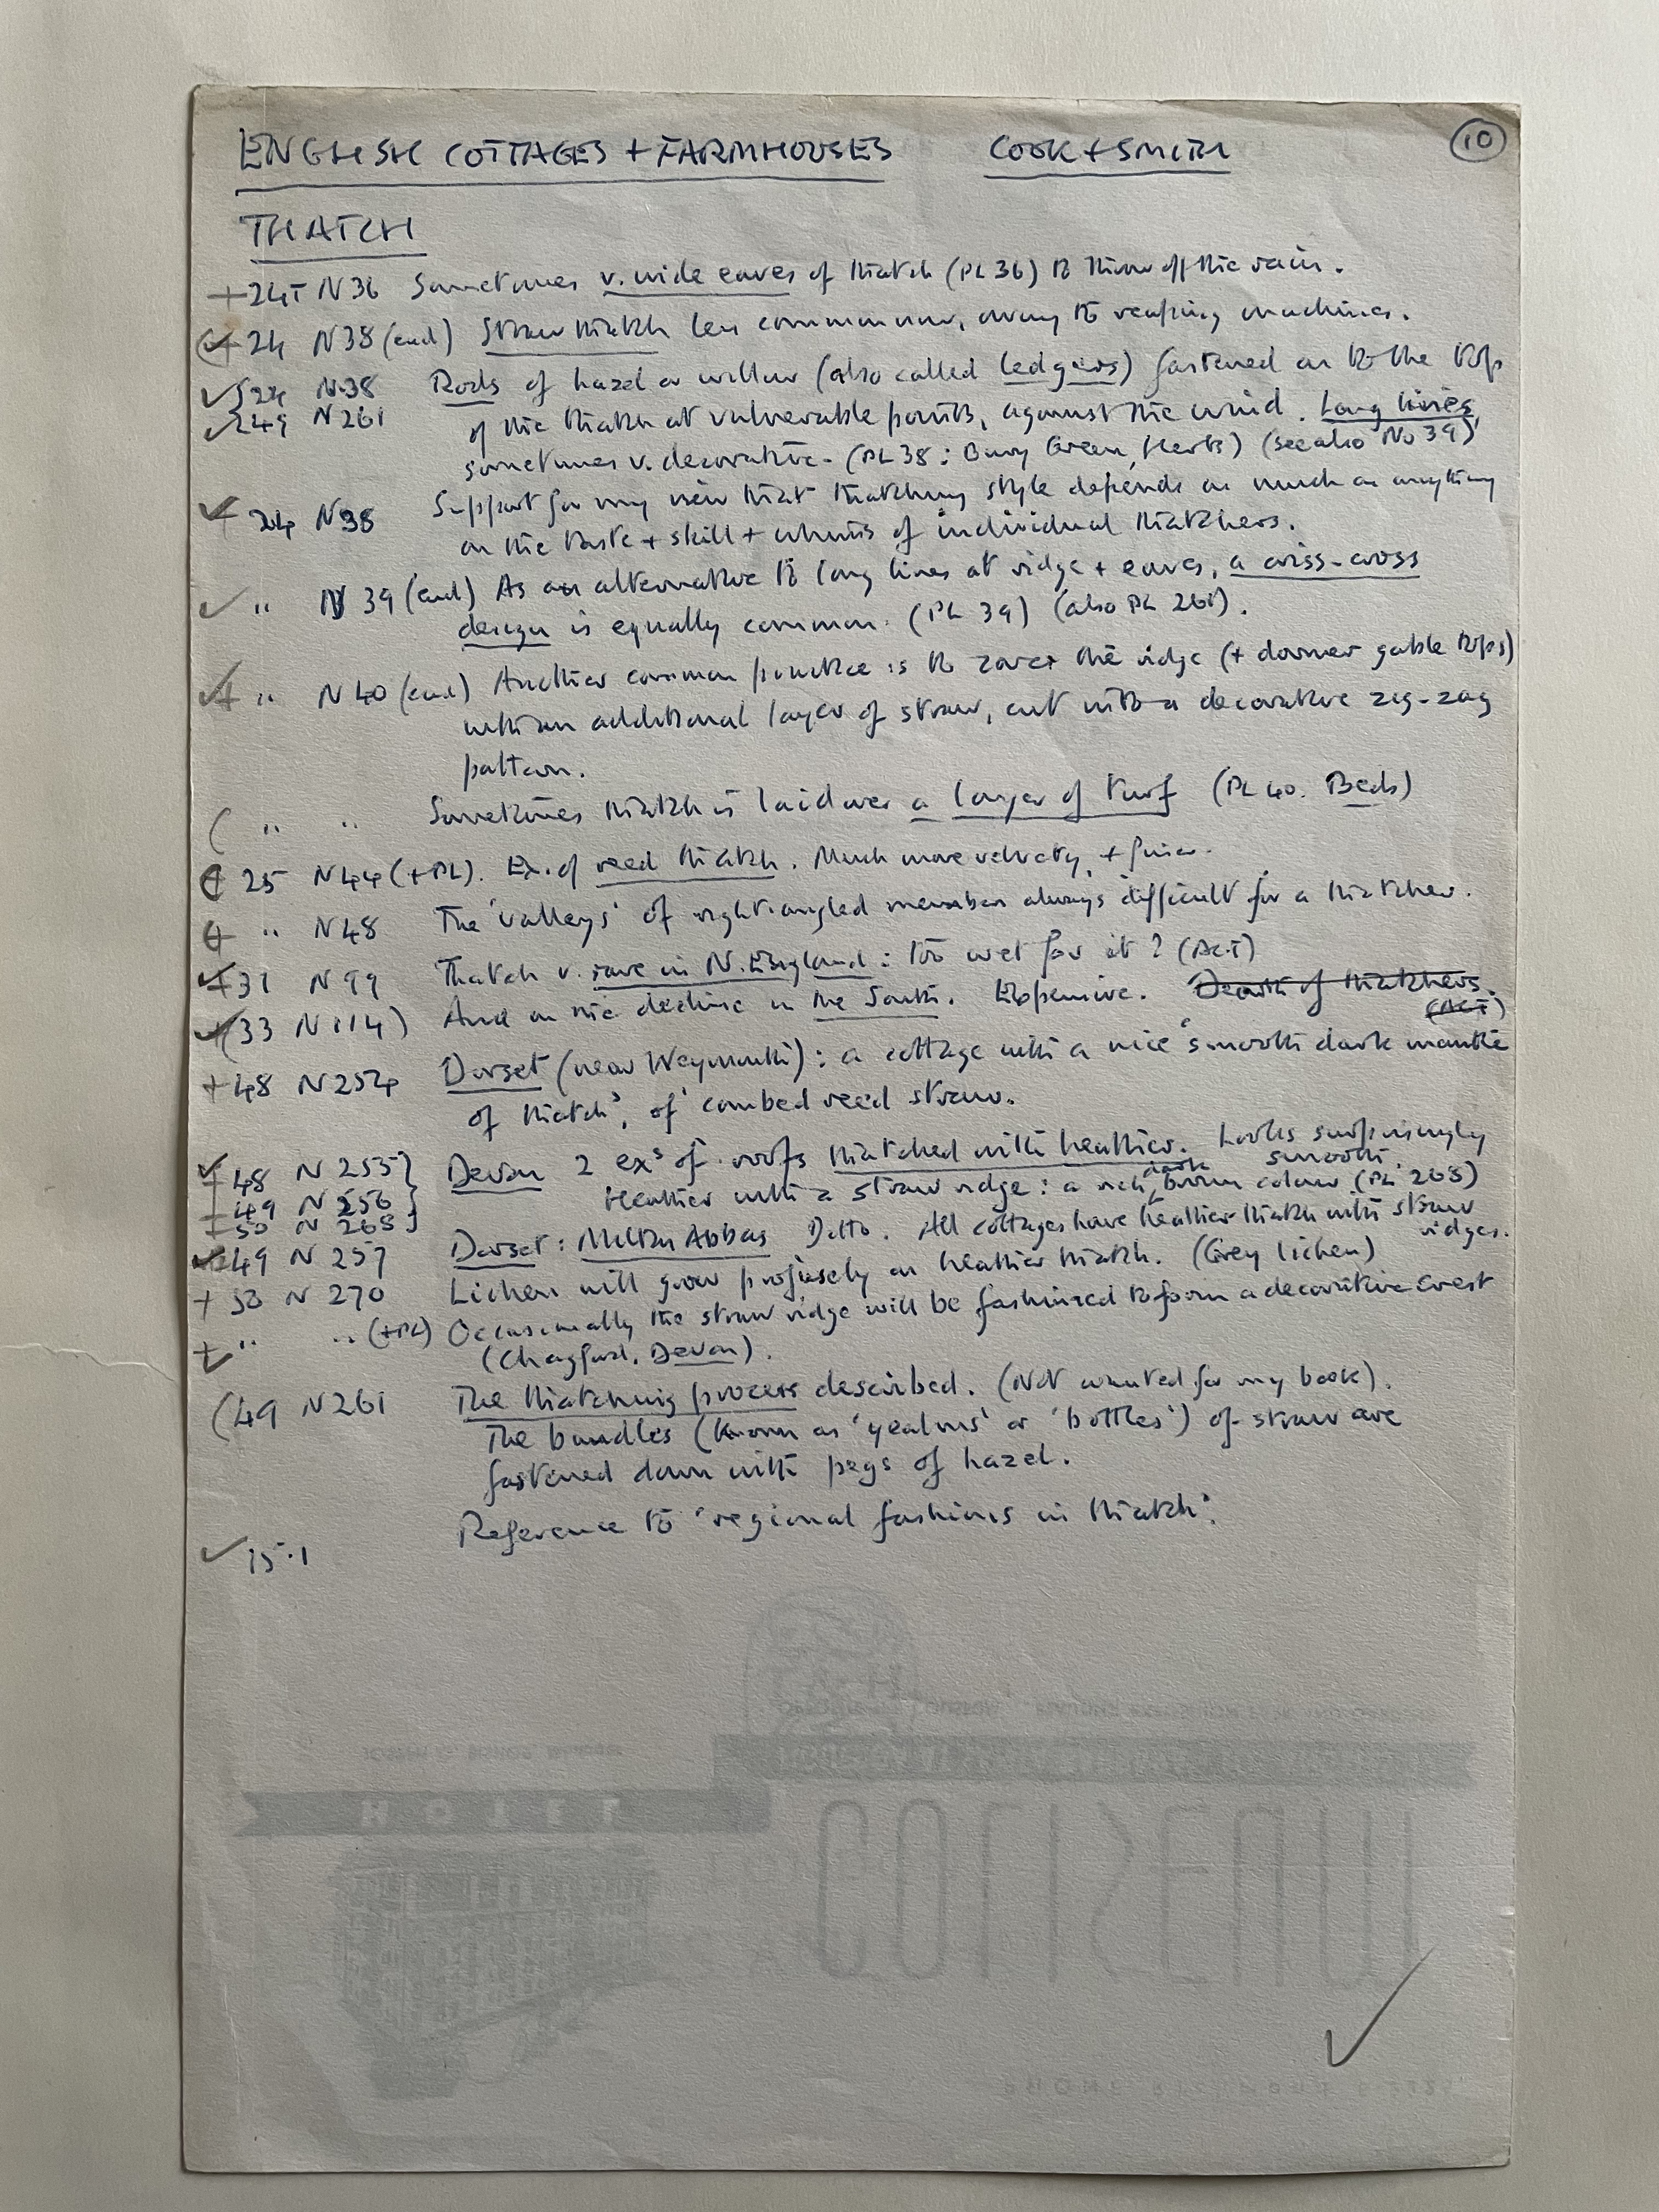 ENGLISH COTTAGES + FARMHOUSES COOK + SMITH 10
THATCH
+ 24T N36 Sometimes v. wide eaves of thatch (PL 36) to throw off the rain.
24 N38 (end) Straw thatch less common now, owing to reaping machines.
✓ 24 N38 Rods of hazel or willow (also called ledgers) fastened on to the top
✓ 249 N261 of the thatch at vulnerable points, against the wind. Long lines,
sometimes v. decorative. (PL 38: Bury Green, Herts) (see also No 39)
24 N38 Support for my view that thatching style depends as much as anything
on the taste + skill + whims of individual thatchers.
✓ " N 39 (end) As an alternative to long lines at ridge + eaves, a criss-cross
design is equally common. (PL 39) (also PL 261).
" N 40 (end) Another common practice is to cover the ridge (+ dormer gable tops)
with an additional layer of straw, cut into a decorative zig-zag
pattern.
( " " Sometimes thatch is laid over a layer of turf (PL 40. Beds)
25 N44 (+PL). Ex. of reed thatch. Much more velvety, + finer.
" N48 The 'valleys' of right-angled members always difficult for a thatcher.
31 N99 Thatch v. rare in N. England: too wet for it? (ACT)
(33 N114) And on the decline in the South. Expensive. Dearth of thatchers.
(ACT)
+ 48 N254 Dorset (near Weymouth): a cottage with a nice 'smooth dark mantle
of thatch', of combed reed straw.
48 N 255} Devon 2 exs of roofs thatched with heather. Looks surprisingly
smooth.
49 N 256 Heather with a straw ridge: a rich dark brown colour (PL 268)
50 N 268}
49 N 257 Dorset: Milton Abbas Ditto. All cottages have heather thatch with straw
ridges.
+ 50 N 270 Lichen will grow profusely on heather thatch. (Grey lichen)
" " (+PL) Occasionally the straw ridge will be fashioned to form a decorative crest
(Chagford, Devon).
(49 N261 The thatching process described. (Not wanted for my book).
The bundles (known as 'yealms' or 'bottles') of straw are
fastened down with pegs of hazel.
✓ 15.1 Reference to 'regional fashions in thatch'.
HOTEL